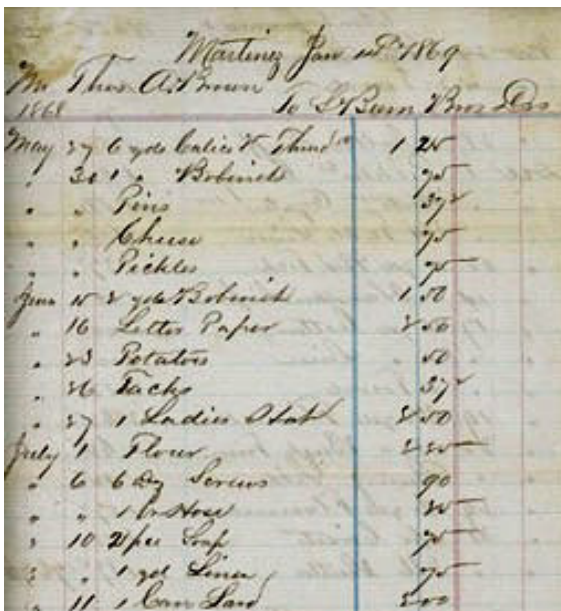 Martinez Jan 1869
Mr Thos A. Brown
1868 To L Blum Bros Drs
May 27 6 yds Calico & Thread 1 25
" 30 1 " Bobinett 75
" " Pins 37 2
" " Cheese 75
" " Pickles 75
June 15 2 yds Bobinett 1 50
" 16 Letter Paper 2 50
" 23 Potatoes 50
" 26 Tacks 37 2
" 27 1 Ladies Hat 2 50
July 1 Flour 2 25
" 6 6 Dz Screws 90
" " 1 Hose 25
" 10 2 pcs Soap 75
" " 1 yd Linen 75
" 11 1 Can Lard 2 00